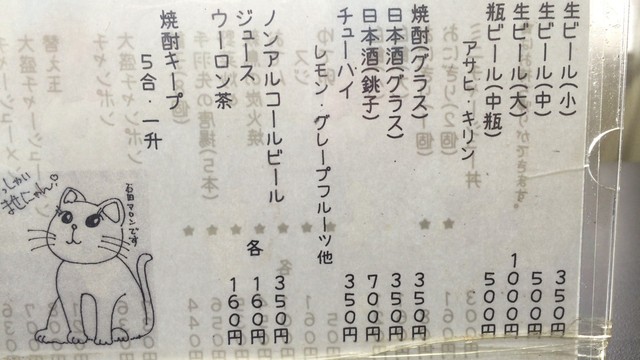 生ビール(小) 350円
生ビール(中) 500円
生ビール(大) 1000円
瓶ビール(中瓶) 500円
アサヒ・キリン
焼酎(グラス) 350円
日本酒(グラス) 350円
日本酒(銚子) 700円
チューハイ 350円
レモン・グレープフルーツ他
ノンアルコールビール 350円
ジュース 各 160円
ウーロン茶 160円
焼酎キープ
5合・一升
石田マロンです